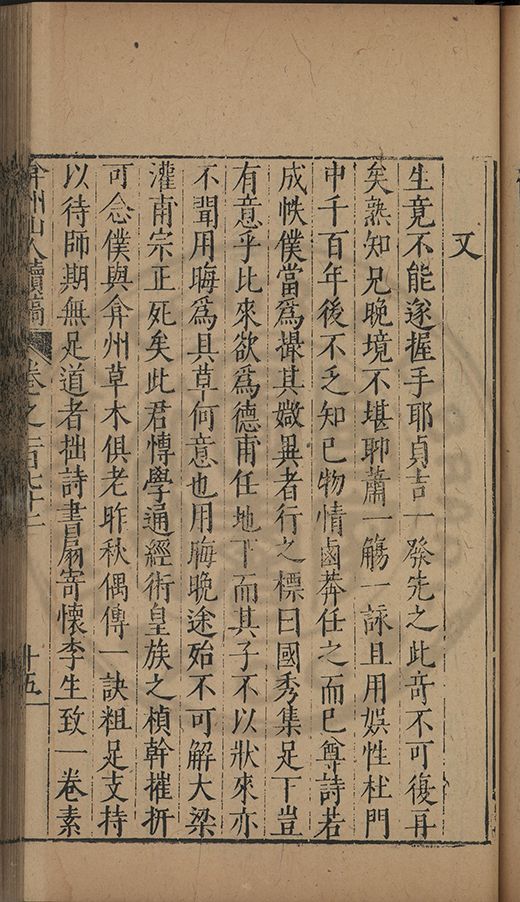 又
生竟不能遂握手耶貞吉一發先之此奇不可復再
矣熟知兄晚境不堪聊蕭一觴一詠且用娛性杜門
中千百年後不乏知已物情鹵莽任之而已尊詩若
成帙僕當為撮其媺異者行之標曰國秀集足下豈
有意乎比來欲為德甫任地下而其子不以狀來亦
不聞用晦為具草何意也用晦晚途殆不可解大梁
灌甫宗正死矣此君愽學通經術皇族之楨幹摧折
可念僕與弇州草木俱老昨秋偶傳一訣粗足支持
以待師期無足道者拙詩書扇寄懷李生致一卷素
弇州山人續稿 卷之一百七十二 十五